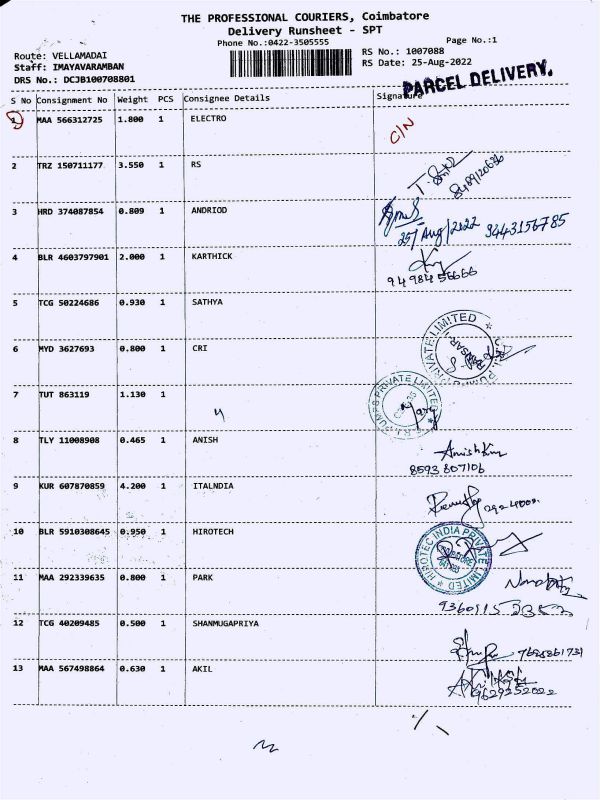 THE PROFESSIONAL COURIERS, Coimbatore
Delivery Runsheet - SPT
Phone No.:0422-3505555
Page No.:1
Route: VELLAMADAI
RS No.: 1007088
Staff: IMAYAVARAMBAN
RS Date: 25-Aug-2022
DRS No.: DCJB100708801
PARCEL DELIVERY.
S No Consignment No Weight PCS Consignee Details Signature
1 MAA 566312725 1.800 1 ELECTRO C/N
2 TRZ 150711177 3.550 1 RS
3 HRD 374087854 0.809 1 ANDRIOD
25/Aug/2022 9443156785
4 BLR 4603797901 2.000 1 KARTHICK
9498456666
5 TCG 50224686 0.930 1 SATHYA
PRIVATE LIMITED
6 MYD 3627693 0.800 1 CRI
7 TUT 863119 1.130 1
PUMPS PRIVATE LIMITED
8 TLY 11008908 0.465 1 ANISH
8593807106
9 KUR 607870859 4.200 1 ITALNDIA
10 BLR 5910308645 0.950 1 HIROTECH
HIROTEC INDIA PRIVATE LIMITED
11 MAA 292339635 0.800 1 PARK
12 TCG 40209485 0.500 1 SHANMUGAPRIYA
13 MAA 567498864 0.630 1 AKIL
9629252022